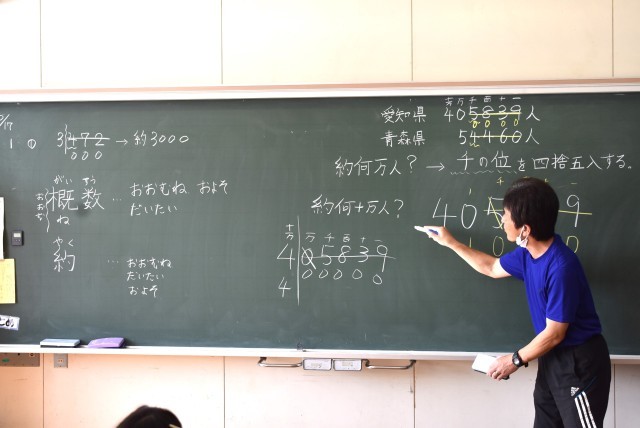 3/17
1 ① 3472 → 約3000
000
がい すう
概数 … おおむね およそ
おおむね だいたい
やく
約 … おおむね
だいたい
およそ
十万 万 千 百 十 一
愛知県 405839人
0000
青森県 54460人
約何万人? → 千の位を四捨五入する。
約何十万人?
十万 万 千 百 十 一
405839
00000
4
405 9
10 0